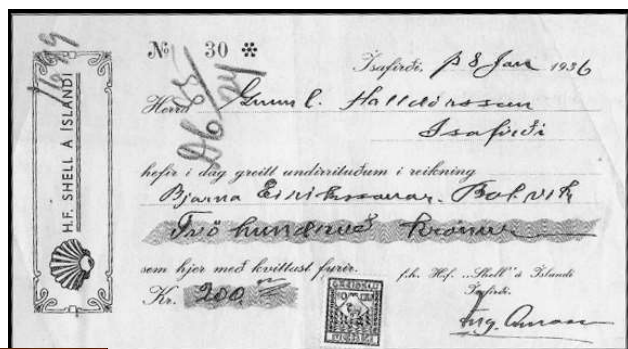 H.F. SHELL Á ÍSLANDI
No 30
Ísafirði, þ 8 Jan 1936
Herra Gunnl. Halldórsson
Ísafirði
hefir í dag greitt undirrituðum í reikning
Bjarna Eiríkssonar. Bol.vík
Tvö hundruð krónur
sem hjer með kvittast fyrir.
f.h. H.f. „Shell" á Íslandi
Ísafirði.
Kr. 200